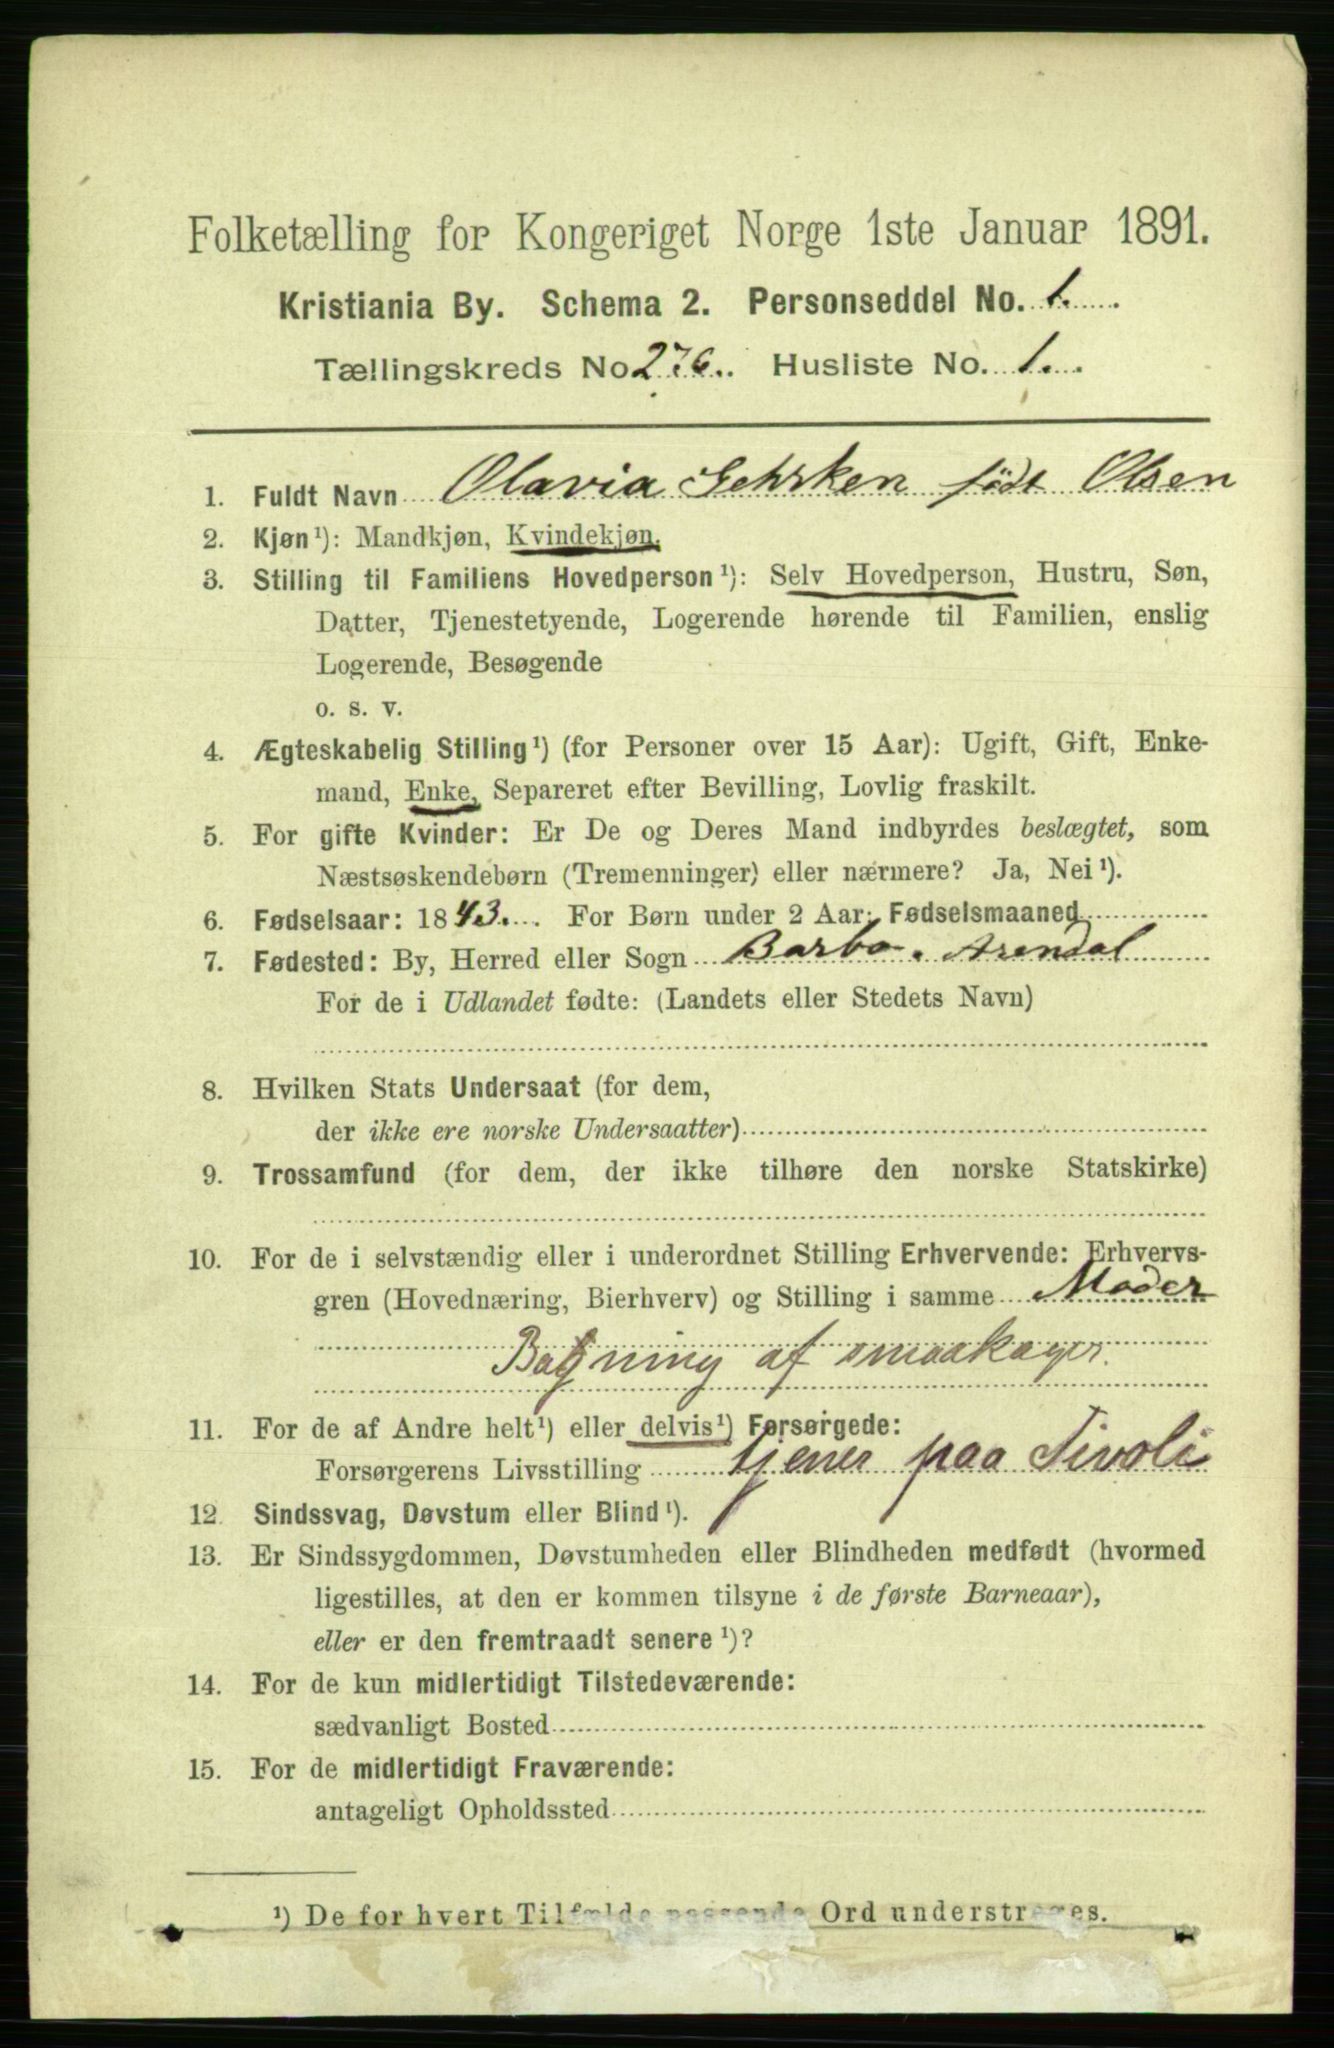 Folketælling for Kongeriget Norge 1ste Januar 1891.
Kristiania By. Schema 2. Personseddel No. 1.
Tællingskreds No 276. Husliste No. 1.
1. Fuldt Navn Olavia Gehrken födt Olsen
2. Kjøn¹): Mandkjøn, Kvindekjøn.
3. Stilling til Familiens Hovedperson¹): Selv Hovedperson, Hustru, Søn,
Datter, Tjenestetyende, Logerende hørende til Familien, enslig
Logerende, Besøgende
o. s. v.
4. Ægteskabelig Stilling¹) (for Personer over 15 Aar): Ugift, Gift, Enke-
mand, Enke, Separeret efter Bevilling, Lovlig fraskilt.
5. For gifte Kvinder: Er De og Deres Mand indbyrdes beslægtet, som
Næstsøskendebørn (Tremenninger) eller nærmere? Ja, Nei¹).
6. Fødselsaar: 1843. For Børn under 2 Aar: Fødselsmaaned
7. Fødested: By, Herred eller Sogn Barbo. Arendal
For de i Udlandet fødte: (Landets eller Stedets Navn)
8. Hvilken Stats Undersaat (for dem,
der ikke ere norske Undersaatter)
9. Trossamfund (for dem, der ikke tilhøre den norske Statskirke)
10. For de i selvstændig eller i underordnet Stilling Erhvervende: Erhvervs-
gren (Hovednæring, Bierhverv) og Stilling i samme Moder
Bagning af smaakager.
11. For de af Andre helt¹) eller delvis¹) Forsørgede:
Forsørgerens Livsstilling tjener paa Tivoli
12. Sindssvag, Døvstum eller Blind¹).
13. Er Sindssygdommen, Døvstumheden eller Blindheden medfødt (hvormed
ligestilles, at den er kommen tilsyne i de første Barneaar),
eller er den fremtraadt senere¹)?
14. For de kun midlertidigt Tilstedeværende:
sædvanligt Bosted
15. For de midlertidigt Fraværende:
antageligt Opholdssted
¹) De for hvert Tilfælde passende Ord understreges.